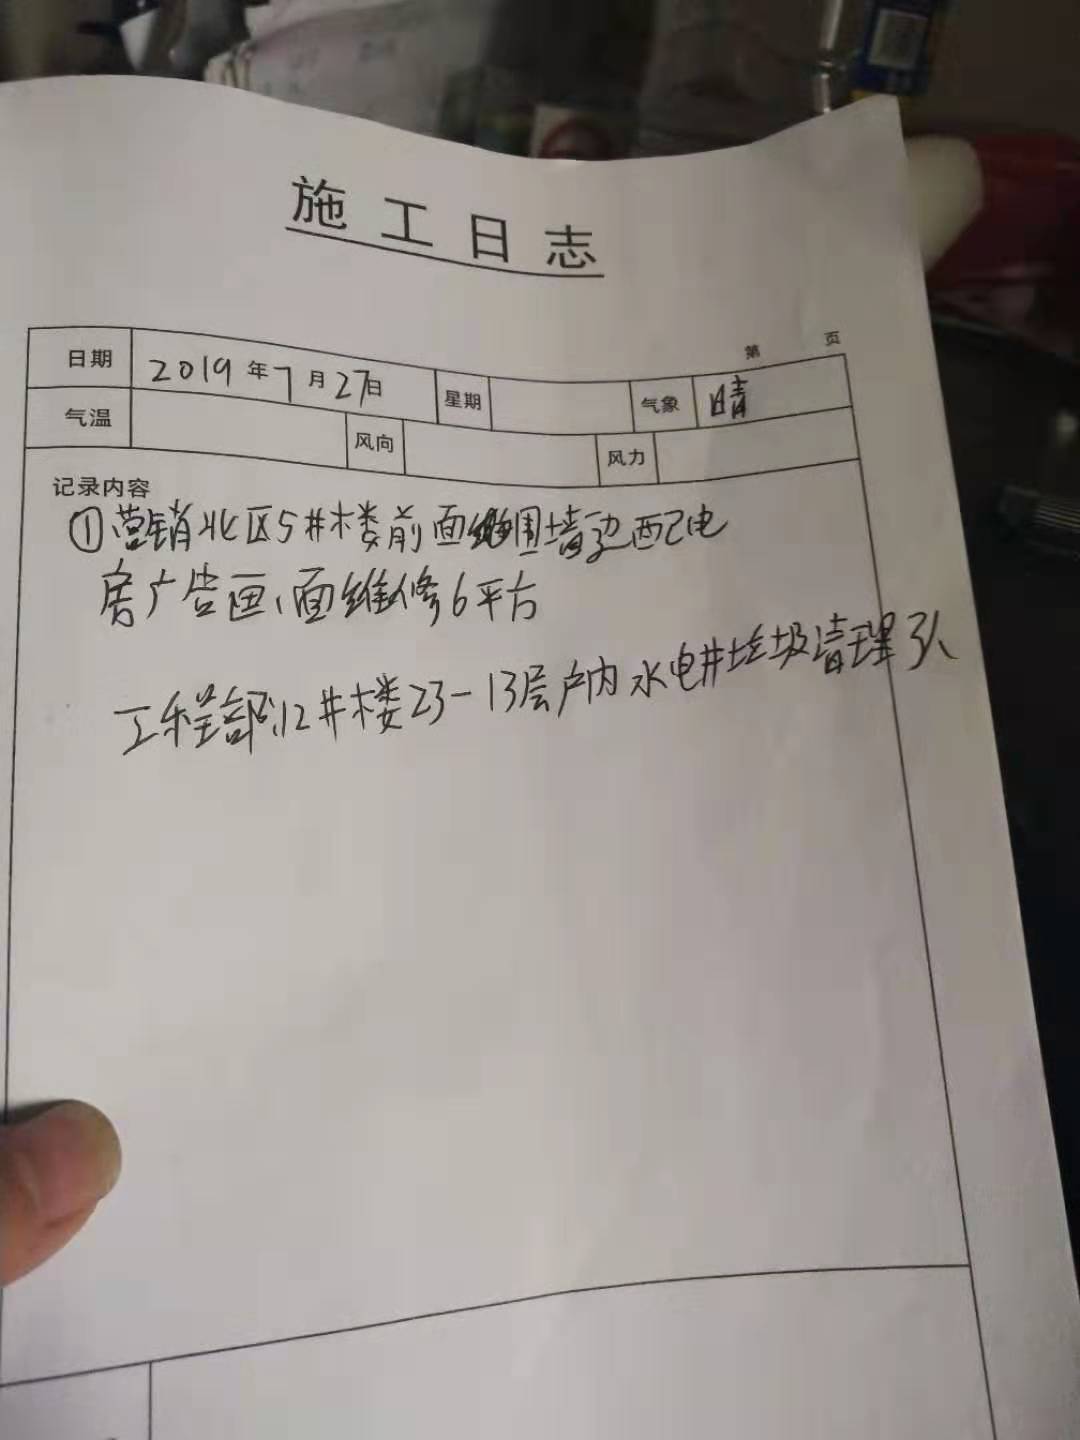 施工日志
第 页
日期 2019年7月27日 星期 气象 晴
气温 风向 风力
记录内容
①营销北区5#楼前面围墙边配电
房广告画面维修6平方
工程部12#楼23-13层户内水电井垃圾清理3人